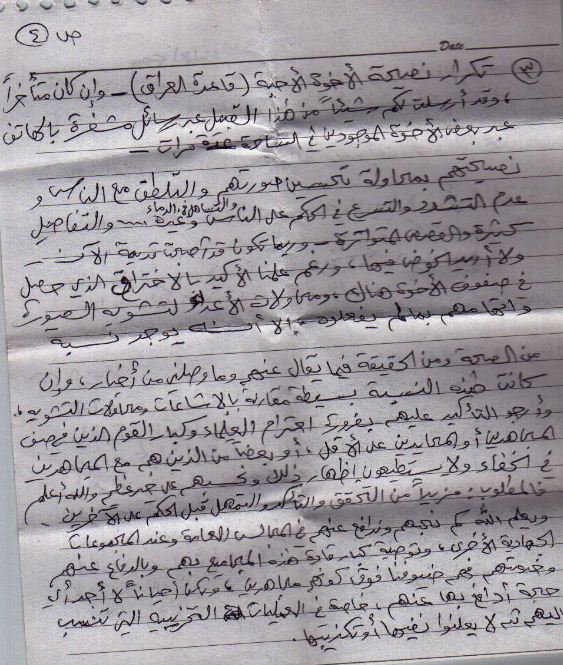 ص (٤)
Date
(٣) تكرار نصيحة الأخوة الأحبة (قاعدة العراق) - وإن كان متأخراً
، وقد أرسلت لكم شيئاً من هذا القبيل عبر رسائل مشفرة بالهاتف
عبر بعض الأخوة الموجودين في الساحة عدة مرات -
نصيحتهم بمحاولة تحسين صورتهم والتلطف مع الناس و
عدم التشدد والتسرع في الحكم على الناس والتساهل في الدماء وغيره .... والتفاصيل
كثيرة والقصص المتواترة - وربما تكون قد أصبحت قديمة الآن -
ولا أريد الخوض فيها، ورغم علمنا الأكيد بالاختراق الذي حصل
في صفوف الأخوة هناك، ومحاولات الأعداء لتشويه الصورة
واتهامهم بما لم يفعلوه - إلا أنه يوجد نسبة
من الصحة ومن الحقيقة فيما يقال عنهم وما وصلني من أخبار، وإن
كانت هذه النسبة بسيطة مقارنة بالإشاعات ومحاولات التشويه.
وأرجو التأكيد عليهم بضرورة احترام العلماء وكبار القوم الذين في صف
المجاهدين أو المحايدين على الأقل، أو بعضاً من الذين هم مع المجاهدين
في الخفاء ولا يستطيعون إظهار ذلك ونحسبهم على خير عظيم والله أعلم
فالمطلوب: مزيداً من التحقق والتأكد والتمهل قبل الحكم على الآخرين -
ويعلم الله كم نحبهم وندافع عنهم في المجالس العامة وعند المجموعات
الجهادية الأخرى، وتوصية كبار قادة هذه المجاميع بهم وبالدفاع عنهم
وخدمتهم فهم ضيوفنا فوق كونهم مجاهدين، ولكن أحياناً لا أجد أي
حجة أدافع بها عنهم، خاصة في العمليات التخريبية التي تنسب
إليهم ثم لا يعلنوا نفيها أو تكذيبها.